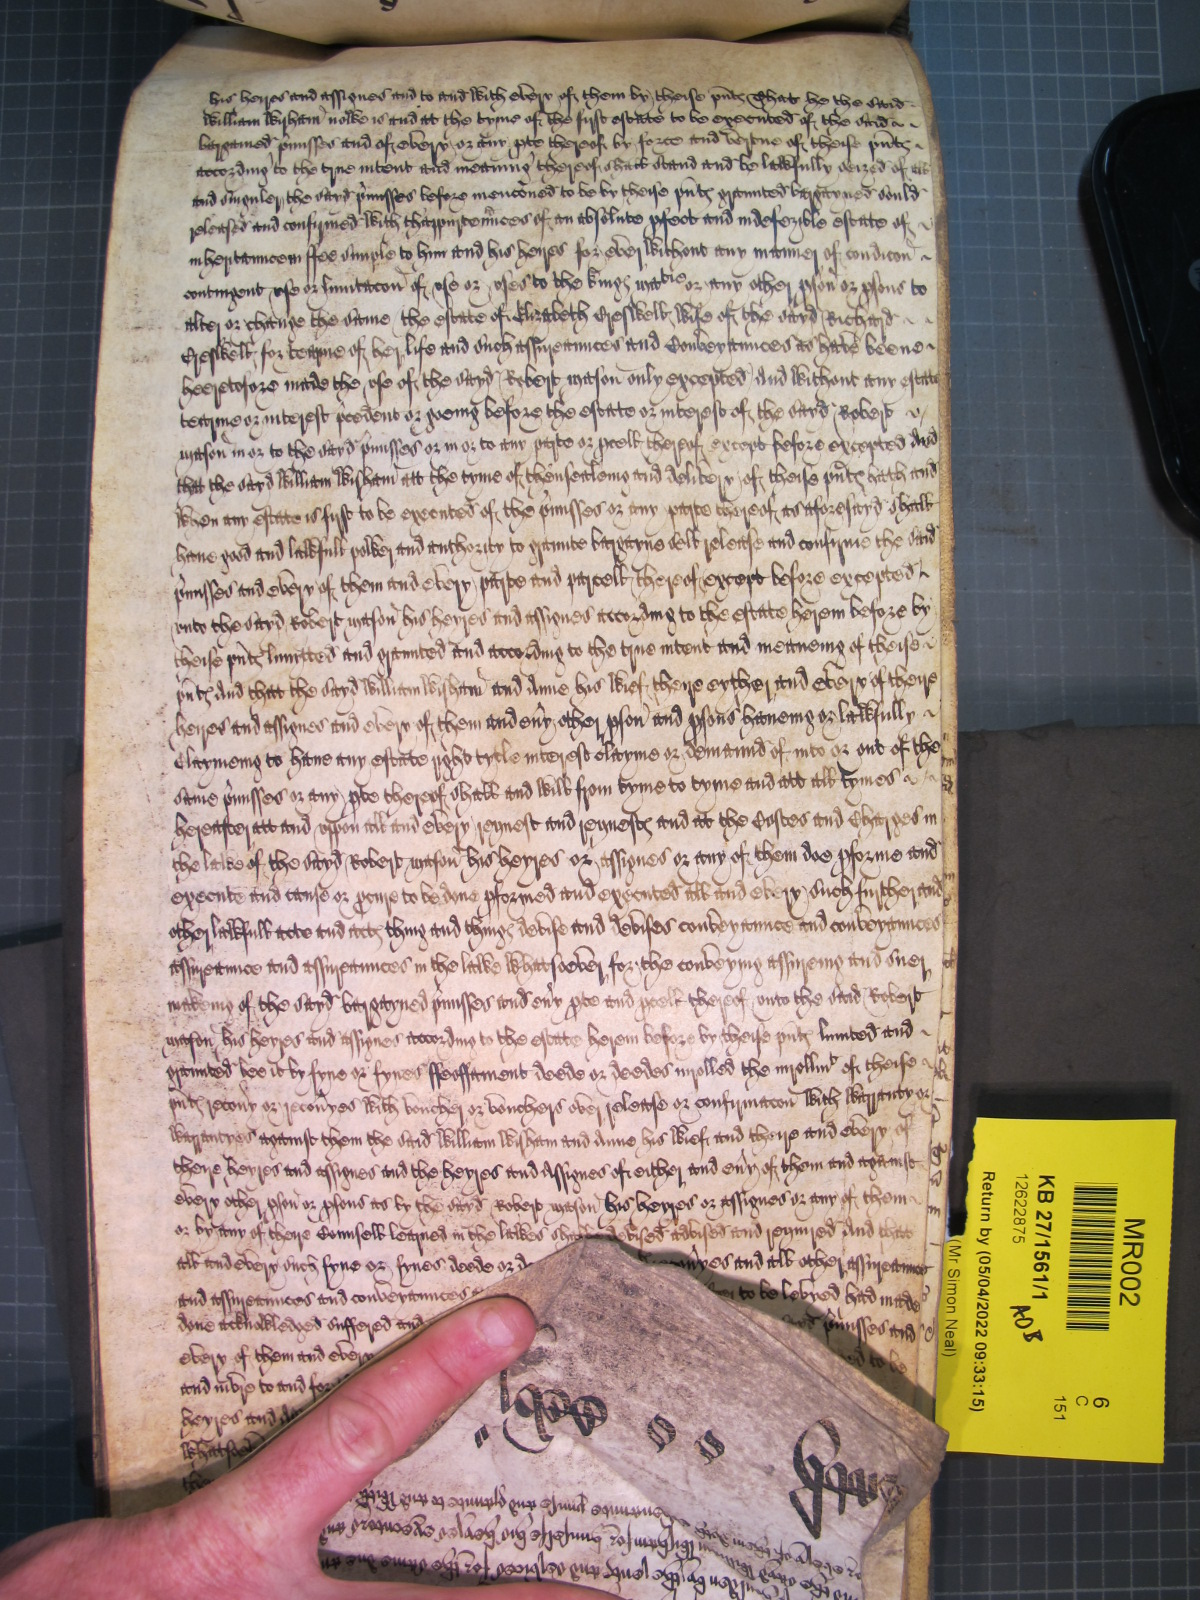 his heyres and assignes and to and with every of them by theise pñts That he the said
William Wisham nowe is and at the tyme of the first estate to be executed of the said
bargained p̃misses and of every or any pte thereof by force and vertue of theise pñts
according to the true intent and meaning thereof shall stand and be lawfully seized of all
and singuler the sayd p̃misses before mencoñed to be by theise pñts graunted bargayned sould
released and confirmed with thappurtenñces of an absolute pfect and indefezible estate of
inherytaunce in ffee simple to him and his heyres for ever without any manner of condicoñ
contingent use or limitacoñ of use or uses to the kings matie or any other pson or psons to
alter or change the same the estate of Elizabeth Creswell wife of the sayd Richard
Creswell for tearme of her life and such assureaunces and Conveyaunces as have beene
heeretofore made the use of the sayd Robert watson only excepted And without any estate
tearme or interest p̃cedent or goeing before the estate or interest of the sayd Robert
watson in or to the sayd p̃misses or in or to any parte or pcell thereof except before excepted And
that the sayd William Wisham att the tyme of thensealeing and delivery of theise pñts hath and
when any estate is first to be executed of the p̃misses or any parte thereof as aforesayd shall
have good and lawfull power and authority to graunte bargayne sell release and confirme the said
p̃misses and every of them and every parte and parcell thereof except before excepted
unto the sayd Robert watson his heyres and assignes according to the estate herein before by
theise pñts limitted and graunted and according to the true intent and meaneing of theise
pñts And that the sayd William Wisham and Anne his wief theire eyther and every of theire
heyres and assignes and every of them and eṽy other pson and psons haveing or lawfully
claymeing to have any estate right tytle interest clayme or demaund of into or out of the
same p̃misses or any pte thereof shall and will from tyme to tyme and att all tymes
hereafter att and upon all and every request and requests and at the Costes and Charges in
the lawe of the sayd Robert watson his heyres or assignes or any of them doe pforme and
execute and cause or pcure to be done pformed and executed all and every such further and
other lawfull acte and acts thing and things devise and devises conveyaunce and conveyaunces
assureaunce and assureaunces in the lawe whatsoever for the conveying assureing and suer
makeing of the sayd bargayned p̃misses and eṽy pte and pcell thereof unto the said Robert
watson his heyres and assignes according to the estate herein before by theise pñts limited and
graunted bee it by fyne or fynes ffeoffament deede or deedes inrolled the inrollmt of theise
pñts recoṽy or recoṽyes with voucher or vouchers over release or confirmacoñ with warranty or
warrantyes against them the said William Wisham and Anne his wief and theire and every of
theire heyres and assignes and the heyres and Assignes of either and eṽy of them and against
every other pson or psons as by the sayd Robert watson his heyres or assignes or any of them
or by any of theire Counsell learned in the lawes shalbe devised advised and required And that
all and every such fyne or fynes deede or recoṽyes and all other assureaunce
and assureaunces and conveyaunces to be levyed had made
done acknowledged suffered and sayd p̃misses and
every of them and every to be
and
heyres and
whatsoever
MR002
6
C
151
KB 27/1561/1
AOB
12622875
Return by (05/04/2022 09:33:15)
(Mr Simon Neal)